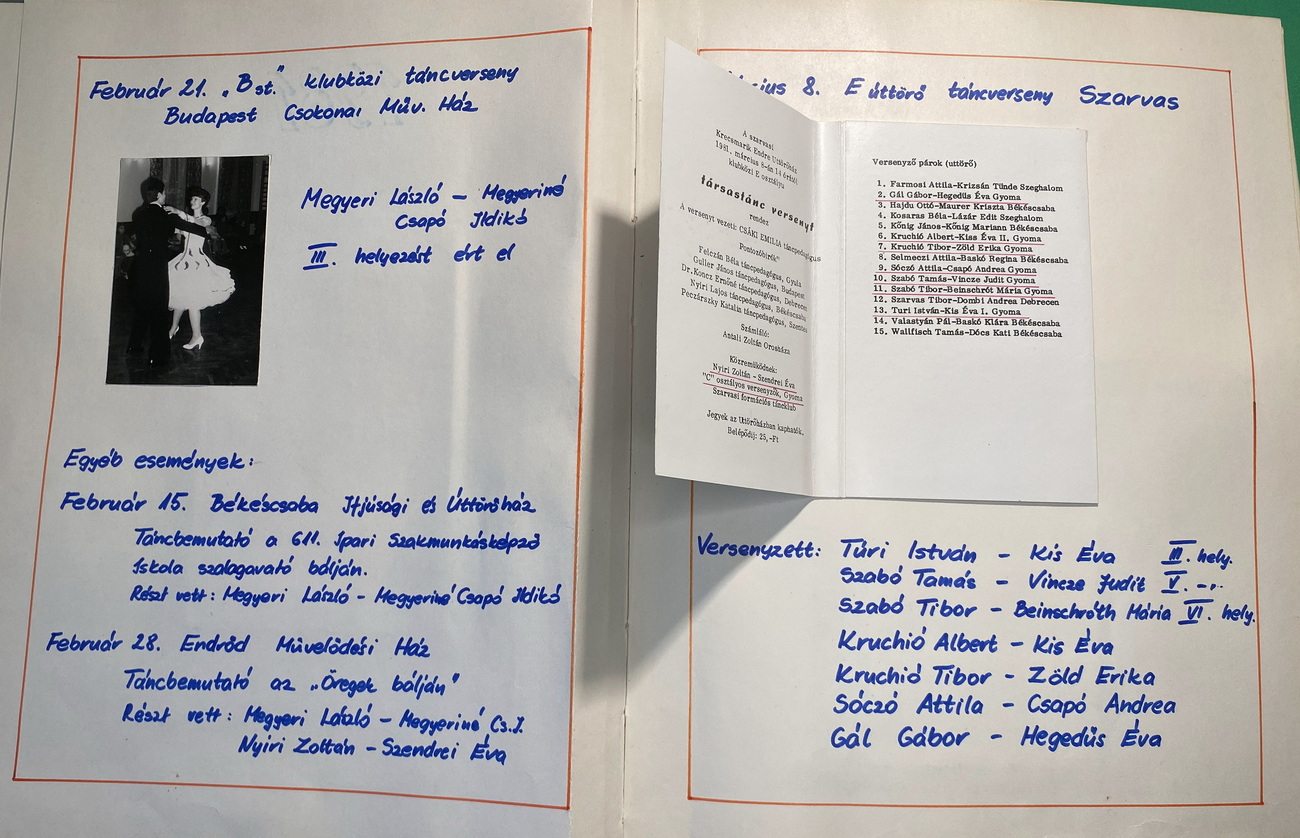 Február 21. „B st." klubközi táncverseny
Budapest Csokonai Műv. Ház
Megyeri László – Megyeriné
Csapó Ildikó
III. helyezést ért el
Egyéb események:
Február 15. Békéscsaba Ifjúsági és Úttörőház
Táncbemutató a 611. Ipari Szakmunkásképző
Iskola szalagavató bálján.
Részt vett: Megyeri László – Megyeriné Csapó Ildikó
Február 28. Endrőd Művelődési Ház
Táncbemutató az „Öregek bálján"
Részt vett: Megyeri László – Megyeriné Cs.I.
Nyiri Zoltán – Szendrei Éva
cius 8. E úttörő táncverseny Szarvas
A szarvasi
Krecsmarik Endre Uttörőház
1981. március 8-án 14 órától
klubközi E osztályu
társastánc versenyt
rendez
A versenyt vezeti: CSÁKI EMILIA táncpedagógus
Pontozóbirók
Felczán Béla táncpedagógus, Gyula
Guller János táncpedagógus, Budapest
Dr. Koncz Ernőné táncpedagógus, Debrecen
Nyiri Lajos táncpedagógus, Békéscsaba
Peczárszky Katalin táncpedagógus, Szentes
Számláló:
Antali Zoltán Orosháza
Közremüködnek:
Nyiri Zoltán - Szendrei Éva
"C" osztályos versenyzők, Gyoma
Szarvasi formációs táncklub
Jegyek az Uttörőházban kaphatók.
Belépődij: 25,-Ft
Versenyző párok (uttörő)
1. Farmosi Attila-Krizsán Tünde Szeghalom
2. Gál Gábor-Hegedüs Éva Gyoma
3. Hajdu Ottó-Maurer Kriszta Békéscsaba
4. Kosaras Béla-Lázár Edit Szeghalom
5. König János-König Mariann Békéscsaba
6. Kruchió Albert-Kiss Éva II. Gyoma
7. Kruchió Tibor-Zöld Erika Gyoma
8. Selmeczi Attila-Baskó Regina Békéscsaba
9. Sóczó Attila-Csapó Andrea Gyoma
10. Szabó Tamás-Vincze Judit Gyoma
11. Szabó Tibor-Beinschrót Mária Gyoma
12. Szarvas Tibor-Dombi Andrea Debrecen
13. Turi István-Kis Éva I. Gyoma
14. Valastyán Pál-Baskó Klára Békéscsaba
15. Wallfisch Tamás-Dócs Kati Békéscsaba
Versenyzett: Túri István – Kis Éva III. hely.
Szabó Tamás – Vincze Judit V. -„-
Szabó Tibor – Beinschróth Mária VI. hely.
Kruchió Albert – Kis Éva
Kruchió Tibor – Zöld Erika
Sóczó Attila – Csapó Andrea
Gál Gábor – Hegedűs Éva